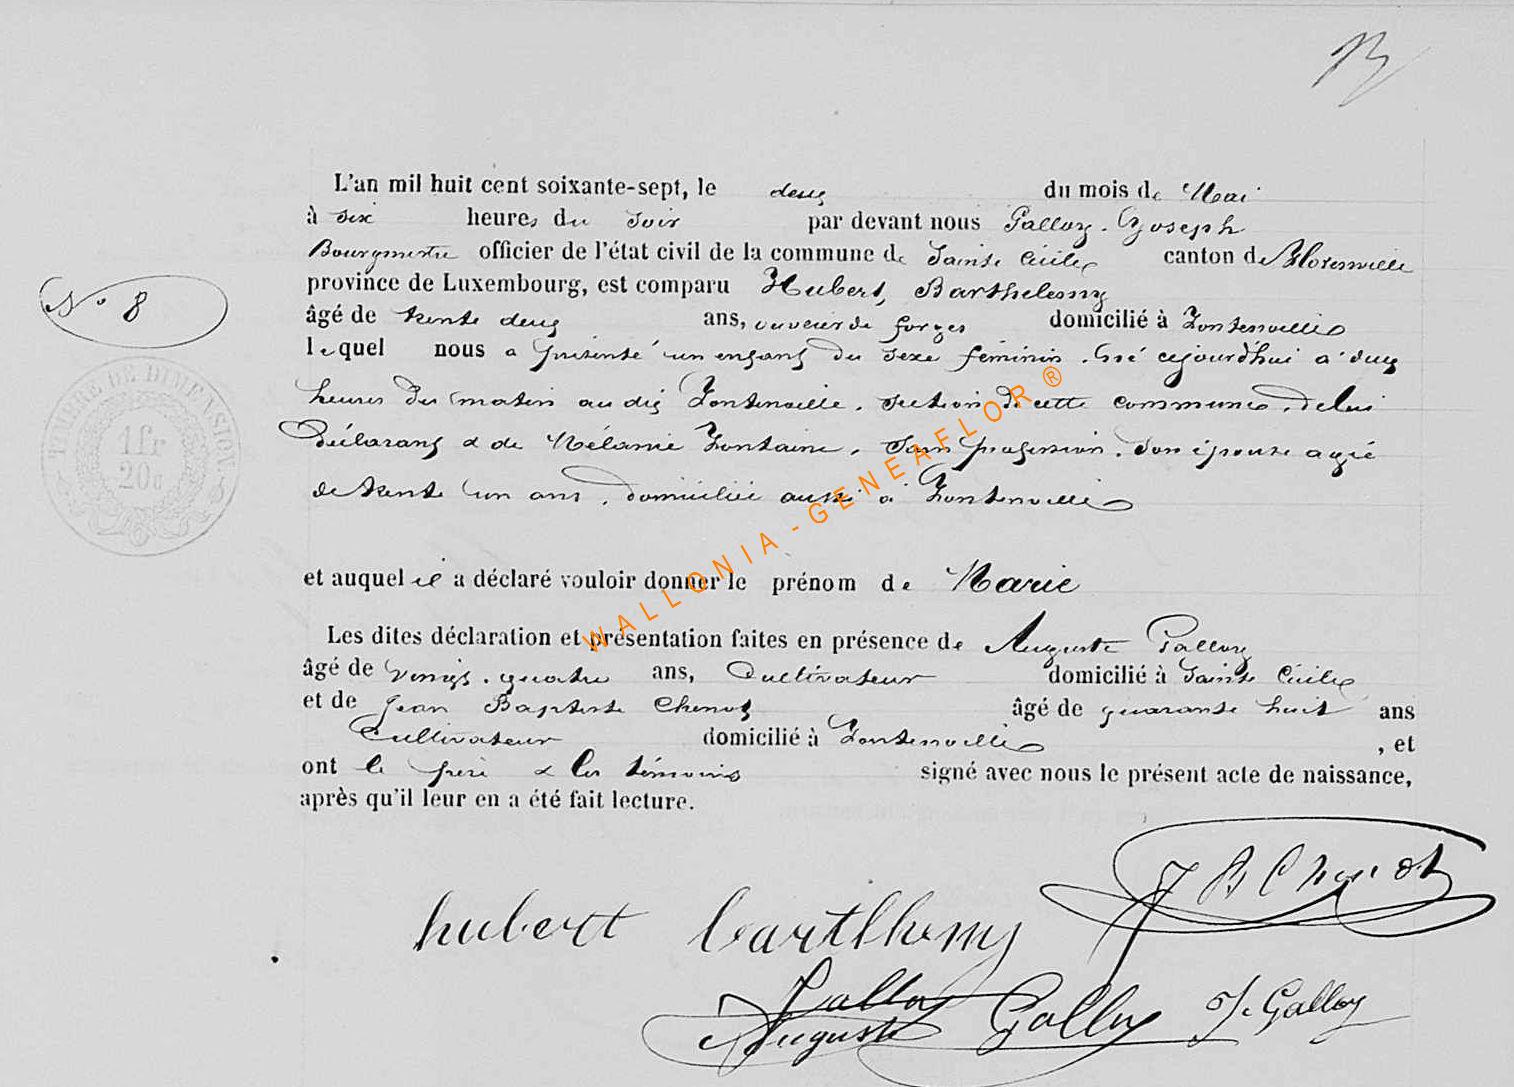 13
L'an mil huit cent soixante-sept, le deux du mois de Mai
à six heures du soir par devant nous Galloy Joseph
Bourgmestre officier de l'état civil de la commune de Sainte Cécile canton de Florenville
province de Luxembourg, est comparu Hubert, Barthelemy
N° 8
âgé de trente deux ans, ouvrier de forges domicilié à Fontenoille
lequel nous a présenté un enfant du sexe féminin. Né cejourd'hui à deux
heures du matin au dit Fontenoille, section de cette commune, de lui
TIMBRE DE DIMENSION
1 fr
20c
déclarant & de Mélanie Fontaine, sans profession, son épouse agée
de trente un ans, domiciliée aussi à Fontenoille
et auquel il a déclaré vouloir donner le prénom de Marie
Les dites déclaration et présentation faites en présence de Auguste Galloy
âgé de vingt-quatre ans, Cultivateur domicilié à Sainte Cécile
et de Jean Baptiste Chenot âgé de quarante huit ans
Cultivateur domicilié à Fontenoille, et
ont le père & les témoins signé avec nous le présent acte de naissance,
après qu'il leur en a été fait lecture.
WALLONIA - GENEAFLOR ®
J B Chenot
hubert bartlhemy
Galloy
Auguste Galloy J. Galloy